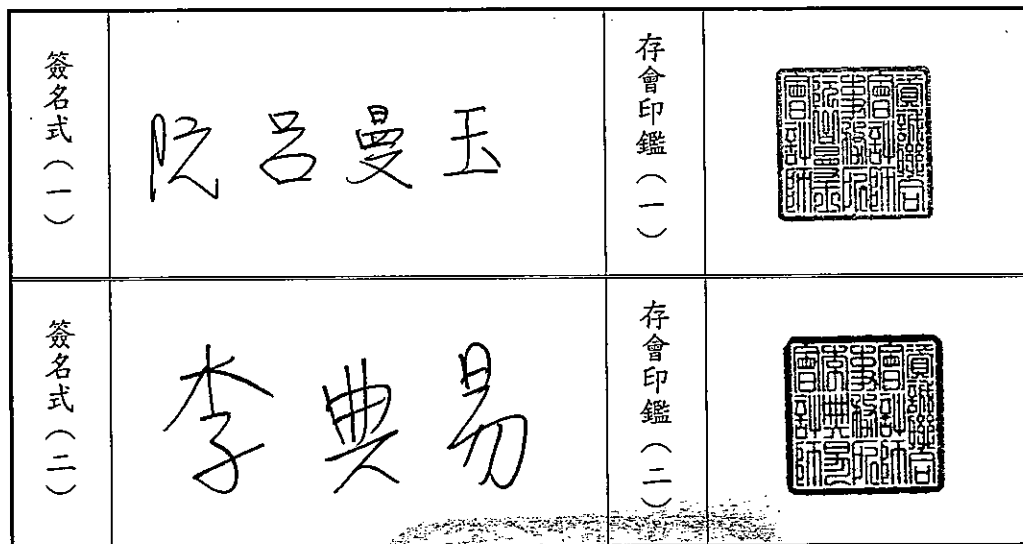 簽名式（一）
阮呂曼玉
存會印鑑（一）
資誠聯合
會計師
事務所
阮呂曼玉
會計師
簽名式（二）
李典易
存會印鑑（二）
資誠聯合
會計師
事務所
李典易
會計師